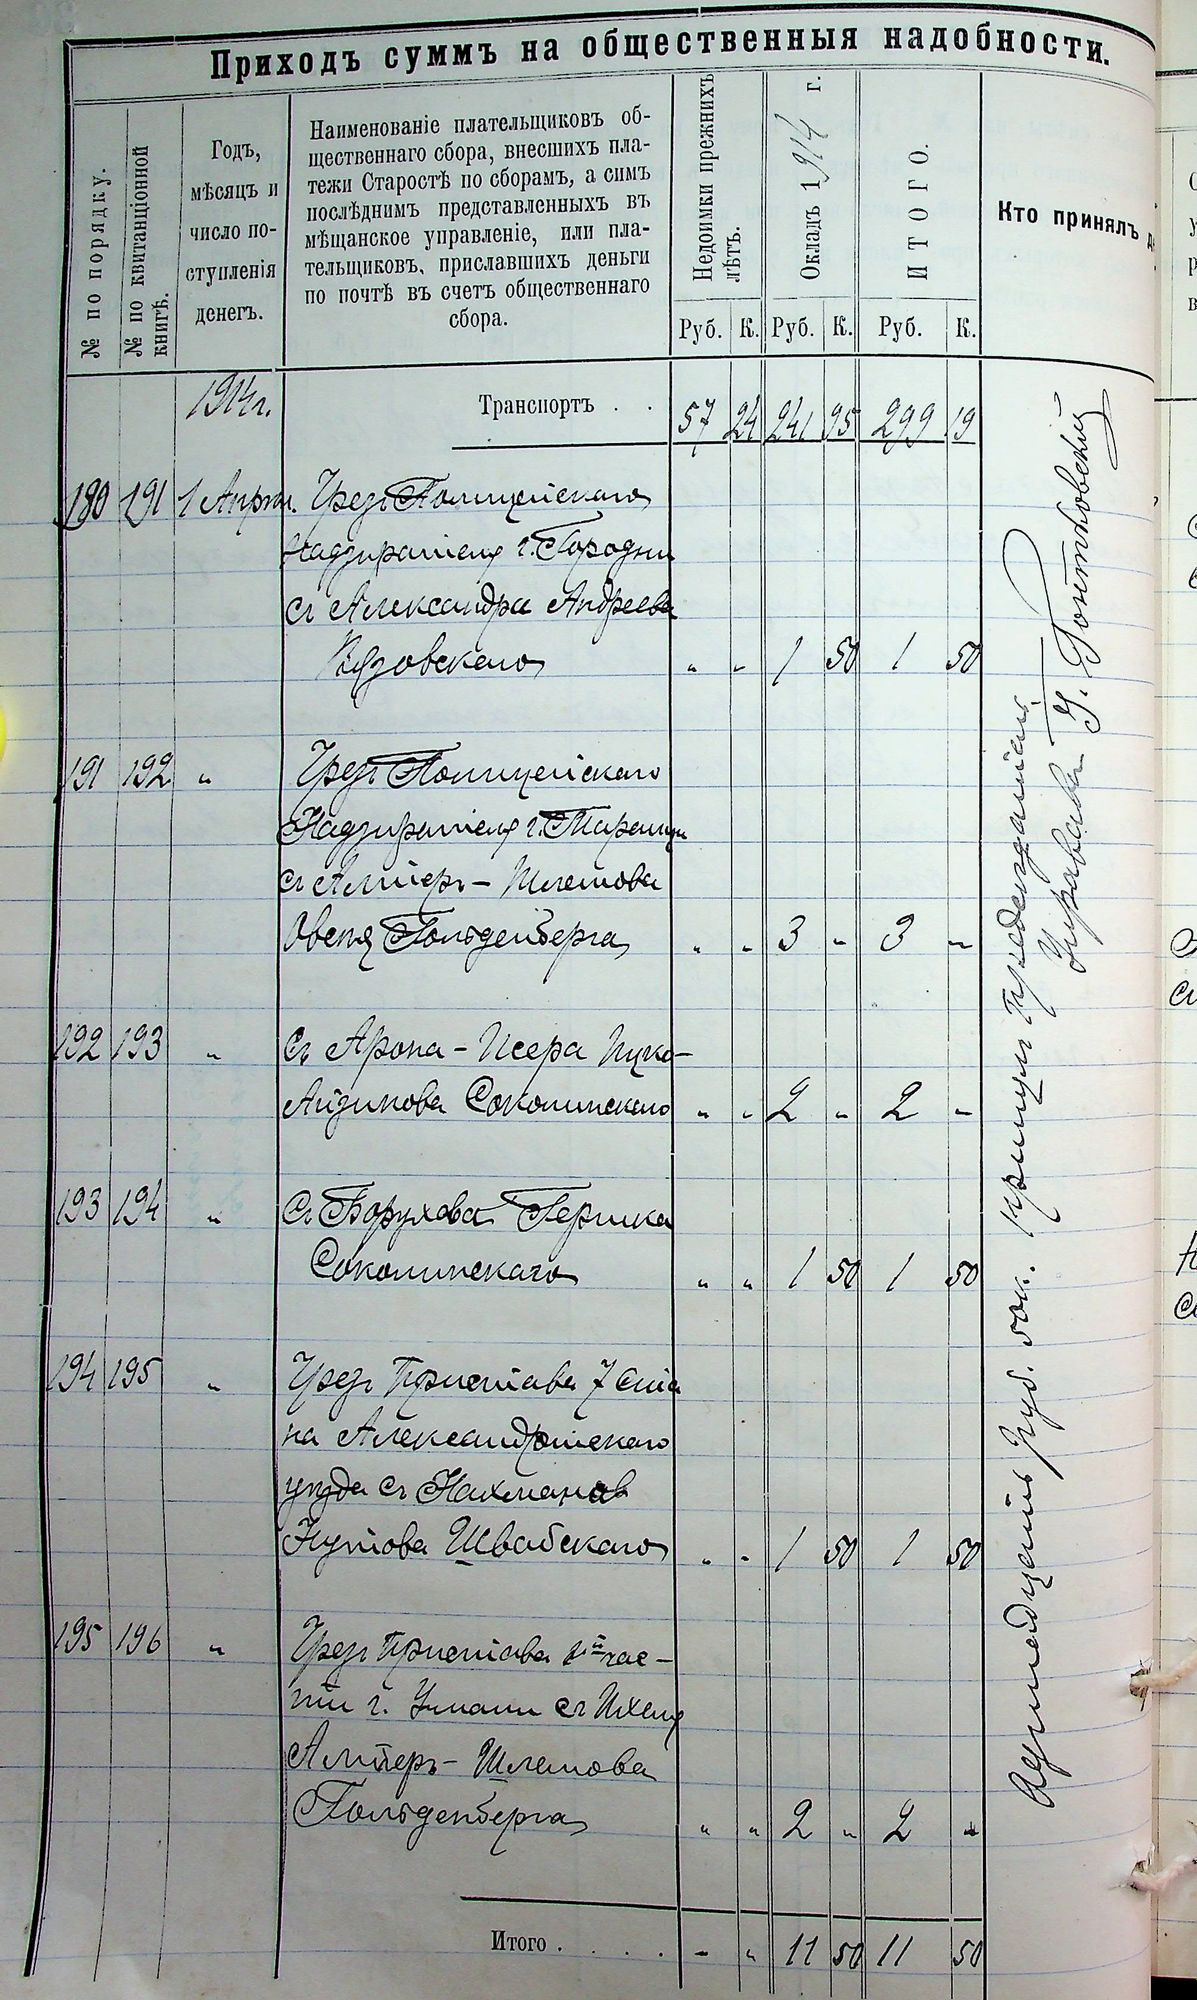 Приходъ суммъ на общественныя надобности.
№ по порядку.
№ по квитанціонной
книгѣ.
Годъ,
мѣсяцъ и
число по-
ступленія
денегъ.
Наименованіе плательщиковъ об-
щественнаго сбора, внесшихъ пла-
тежи Старостѣ по сборамъ, а симъ
послѣднимъ представленныхъ въ
мѣщанское управленіе, или пла-
тельщиковъ, приславшихъ деньги
по почтѣ въ счетъ общественнаго
сбора.
Недоимки прежнихъ
лѣтъ.
Окладъ 1914 г.
ИТОГО.
Кто принялъ
Руб. К. Руб. К. Руб. К.
1914 г. Транспортъ . . 57 24 241 95 299 19
190 191 1 Апрѣл. Чрезъ Полицейскаго
Надзирателя г. Городни
съ Александра Андреева
Вязовскаго " " 1 50 1 50
191 192 " Чрезъ Полицейскаго
Надзирателя г. Таращи
съ Алтеръ-Шлемова
Овсея Гольденберга " " 3 " 3 "
192 193 " Съ Арона-Исера Ицко-
Айзикова Соколинскаго " " 2 " 2 "
193 194 " Съ Борухова Гершка
Соколинскаго " " 1 50 1 50
194 195 " Чрезъ Пристава 7 Ста
на Александрійскаго
уѣзда съ Нахманов
Нутова Швабскаго " " 1 50 1 50
195 196 " Чрезъ Пристава 1й час-
ти г. Умани съ Ихеля
Алтеръ-Шлемова
Гольденберга " " 2 " 2 "
Итого . . . . - " 11 50 11 50
Одиннадцать руб. 50 к. принялъ Предсѣдатель
Управы